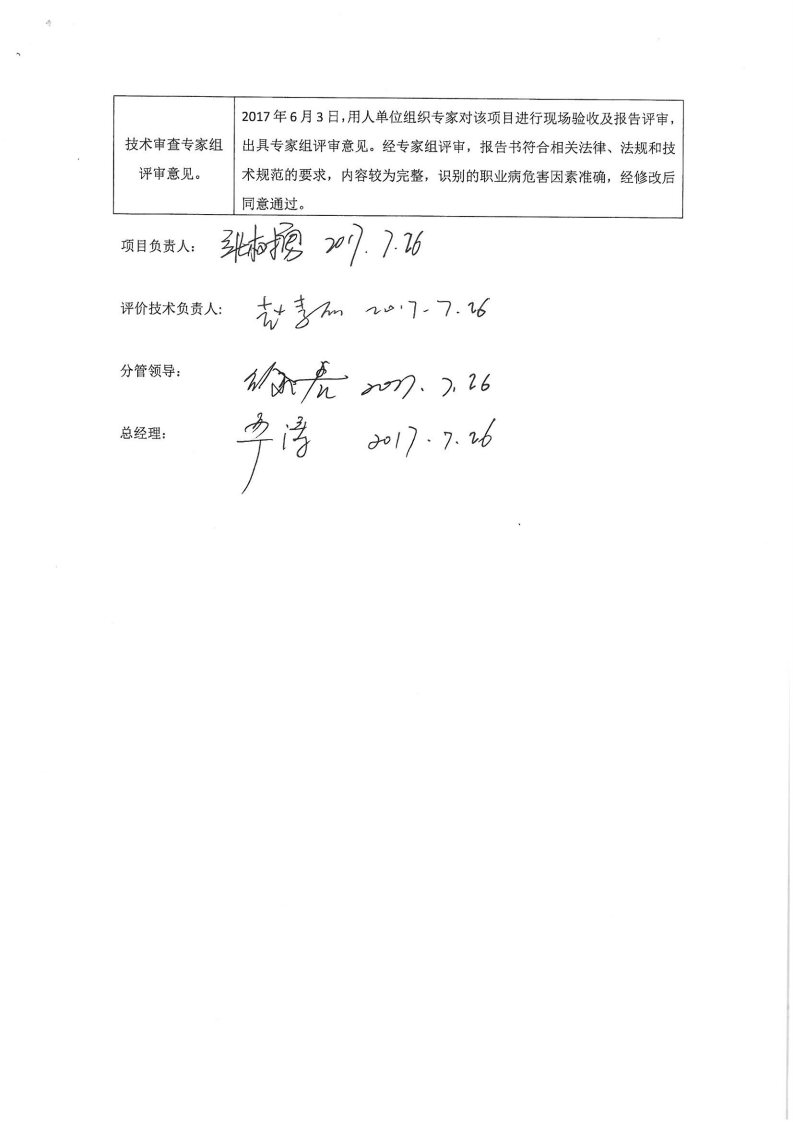 技术审查专家组
评审意见。
2017年6月3日，用人单位组织专家对该项目进行现场验收及报告评审，
出具专家组评审意见。经专家组评审，报告书符合相关法律、法规和技
术规范的要求，内容较为完整，识别的职业病危害因素准确，经修改后
同意通过。
项目负责人： 2017.7.26
评价技术负责人： 2017-7.26
分管领导： 2017.7.26
总经理： 2017.7.26